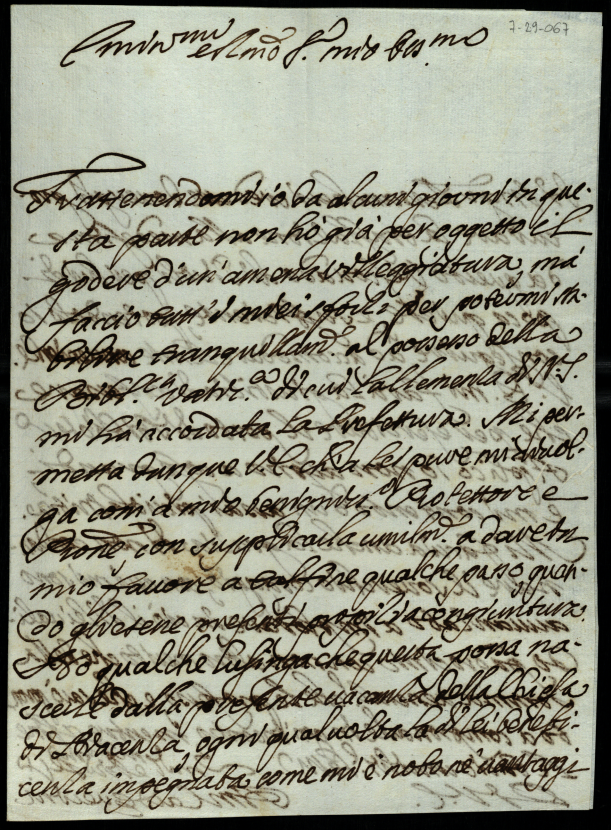 7-29-067
Emin.mo e Rmo S.r mio Oss.mo
Trattenendomi io da alcuni giorni in que-
sta parte non hò già per oggetto il
godere d'un'amena villeggiatura, mà
faccio tutt'i miei sforzi per potermi sta-
bilire tranquillam.e al possesso della
Bibl.ca Vatic.a di cui la clemenza di N.S.
mi hà accordata la Prefettura. Mi per-
metta dunque V.E. ch'a Lei pure mi rivol-
ga com'a mio benigniss.o Protettore e
Prone, con supplicarla umilm.e a dare in
mio favore a tal fine qualche passo, quan-
do gliene presenti propizia congiuntura.
Hò qualche lusinga che questa possa na-
scere dalla presente vacanza della Chiesa
di Piacenza, ogni qual volta la di Lei benefi-
cenza impegnata come mi è noto ne' vantaggi